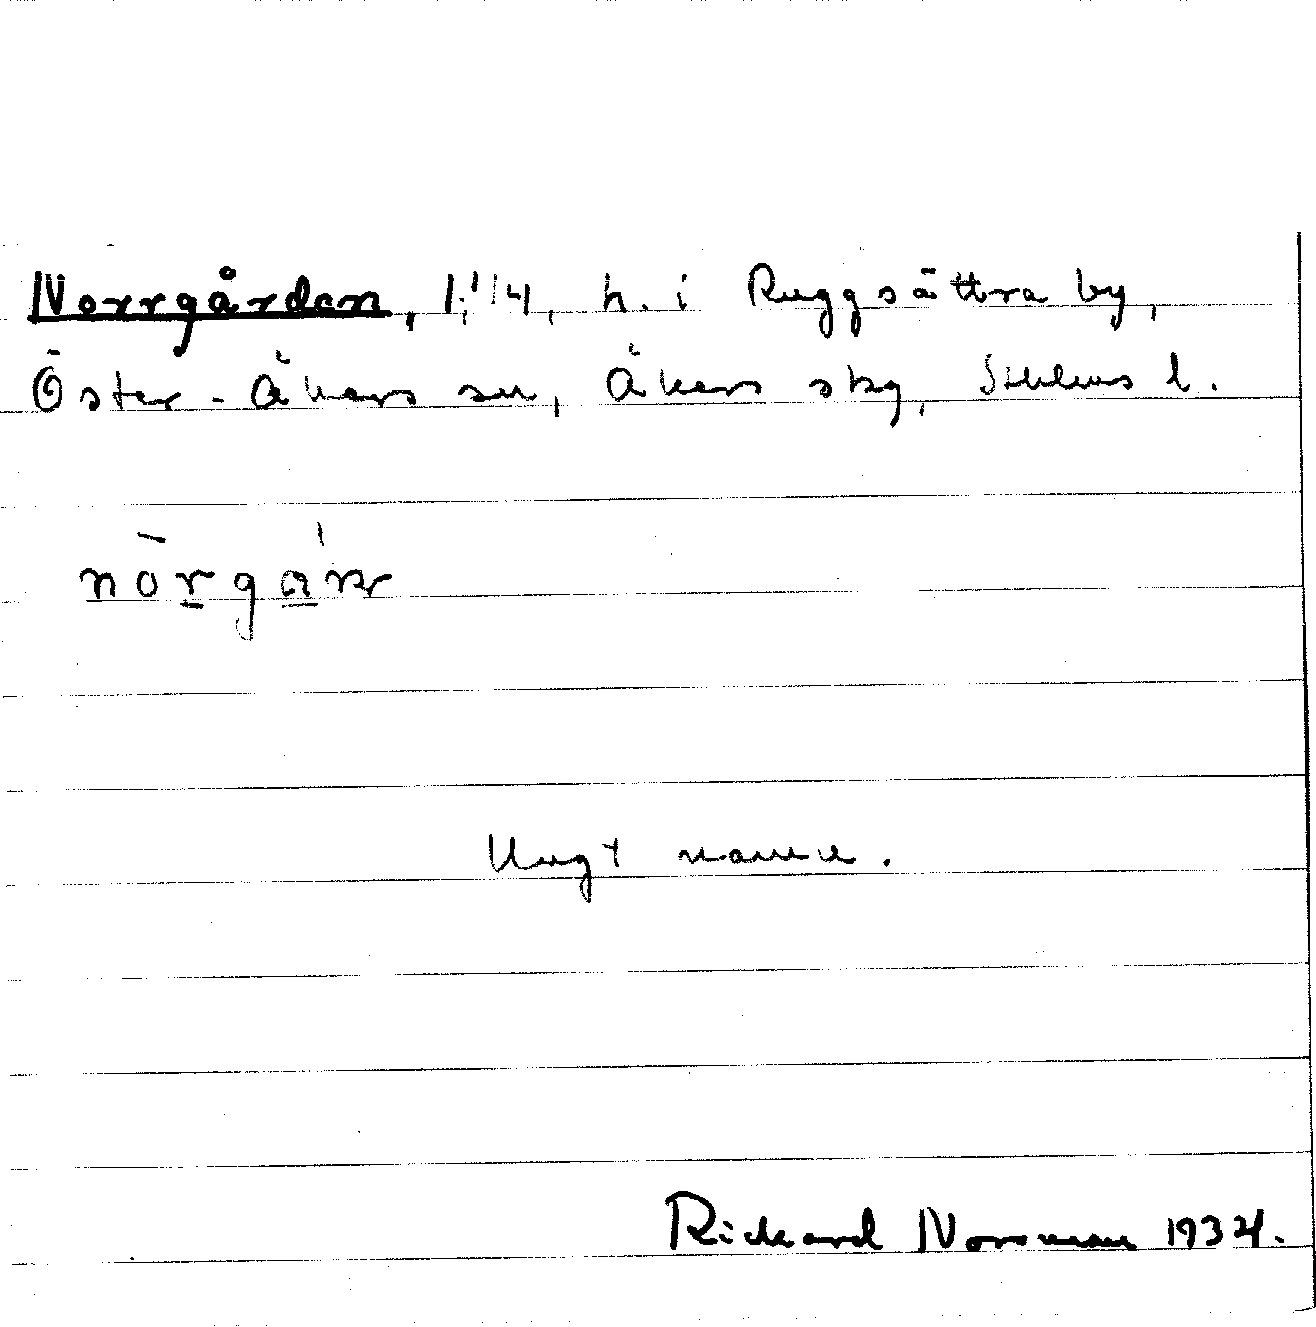 Norrgården, 1:14, h. i Ruggsättra by,
Öster-Åkers sn, Åkers skg, Sthlms l.
Ungt namn.
Rickard Norrman 1934.